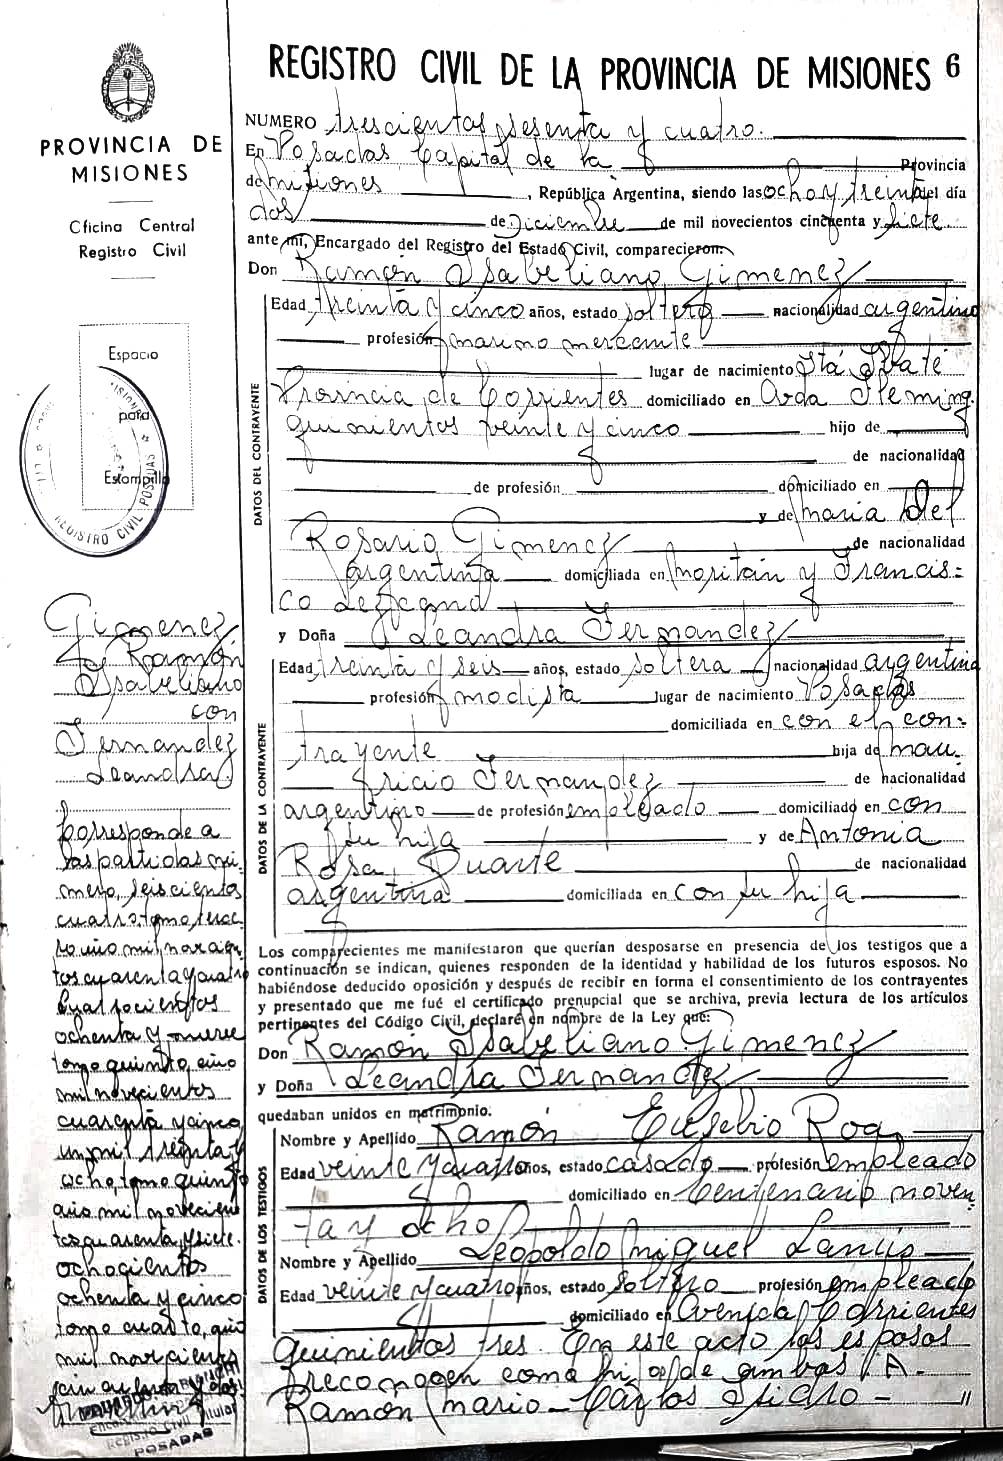 REGISTRO CIVIL DE LA PROVINCIA DE MISIONES 6
PROVINCIA DE
MISIONES
Oficina Central
Registro Civil
Espacio
para
Estampilla
REGISTRO CIVIL POSADAS
Gimenez
Ramón
Isabeliano
con
Fernandez
Leandra
Corresponde a
las partidas nú-
mero, seiscientos
cuatro, tomo
año mil novecien
tos cuarenta y cuatro
Cuatrocientos
ochenta y nueve
tomo quinto, año
mil novecientos
cuarenta y cinco,
un mil treinta y
ocho, tomo quinto
año mil novecien
tos cuarenta y siete.
ochocientos
ochenta y cinco
tomo cuarto, año
mil novecientos
Registro Civil
POSADAS
NUMERO trescientos sesenta y cuatro.
En Posadas Capital de la Provincia
de misiones, República Argentina, siendo las ocho y treinta del día
dos de Diciembre de mil novecientos cincuenta y siete
ante mí, Encargado del Registro del Estado Civil, comparecieron:
Don Ramón Isabeliano Gimenez
DATOS DEL CONTRAYENTE
Edad treinta y cinco años, estado soltero nacionalidad argentino
profesión marino mercante
lugar de nacimiento Itá Ibaté
Provincia de Corrientes domiciliado en Avda Fleming
quinientos veinte y cinco hijo de
de nacionalidad
de profesión domiciliado en
y de Maria Del
Rosario Gimenez de nacionalidad
argentina domiciliada en Moritán y Francis=
co
y Doña Leandra Fernandez
DATOS DE LA CONTRAYENTE
Edad treinta y seis años, estado soltera nacionalidad argentina
profesión modista lugar de nacimiento Posadas
domiciliada en con el con-
trayente hija de Mau-
ricio Fernandez de nacionalidad
argentino de profesión empleado domiciliado en con
su hija y de Antonia
Rosa Duarte de nacionalidad
argentina domiciliada en con su hija
Los comparecientes me manifestaron que querían desposarse en presencia de los testigos que a
continuación se indican, quienes responden de la identidad y habilidad de los futuros esposos. No
habiéndose deducido oposición y después de recibir en forma el consentimiento de los contrayentes
y presentado que me fué el certificado prenupcial que se archiva, previa lectura de los artículos
pertinentes del Código Civil, declaré en nombre de la Ley que:
Don Ramón Isabeliano Gimenez
y Doña Leandra Fernandez
quedaban unidos en matrimonio.
DATOS DE LOS TESTIGOS
Nombre y Apellido Ramón Eusebio Roa
Edad veinte y cuatro años, estado casado profesión empleado
domiciliado en Centenario noven
ta y ocho
Nombre y Apellido Leopoldo Miguel Lanús
Edad veinte y cuatro años, estado soltero profesión empleado
domiciliado en Avenida Corrientes
quinientos tres. En este acto los esposos
reconocen como hijos de ambos A.
Ramón Mario - Carlos Isidro - "